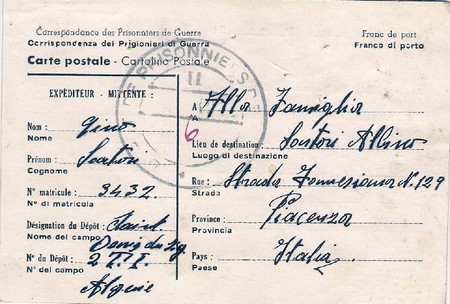 Correspondance des Prisonniers de Guerre
Corrispondenza dei Prigionieri di Guerra
Franc de port
Franco di porto
Carte postale - Cartolina Postale
EXPÉDITEUR - MITTENTE :
Nom : Gino
Nome
Prénom : Sartori
Cognome
N° matricule : 3432
N° di matricola
Désignation du Dépôt : Saint
Nome del campo
Denis du Sig
N° du Dépôt : 2 T.I.
N° del campo
Algerie
PRISONNIE
11
6
A Alla Famiglia
A
Lieu de destination : Sartori Albino
Luogo di destinazione
Rue : Strada N. 129
Strada
Province : Piacenza
Provincia
Pays : Italia
Paese